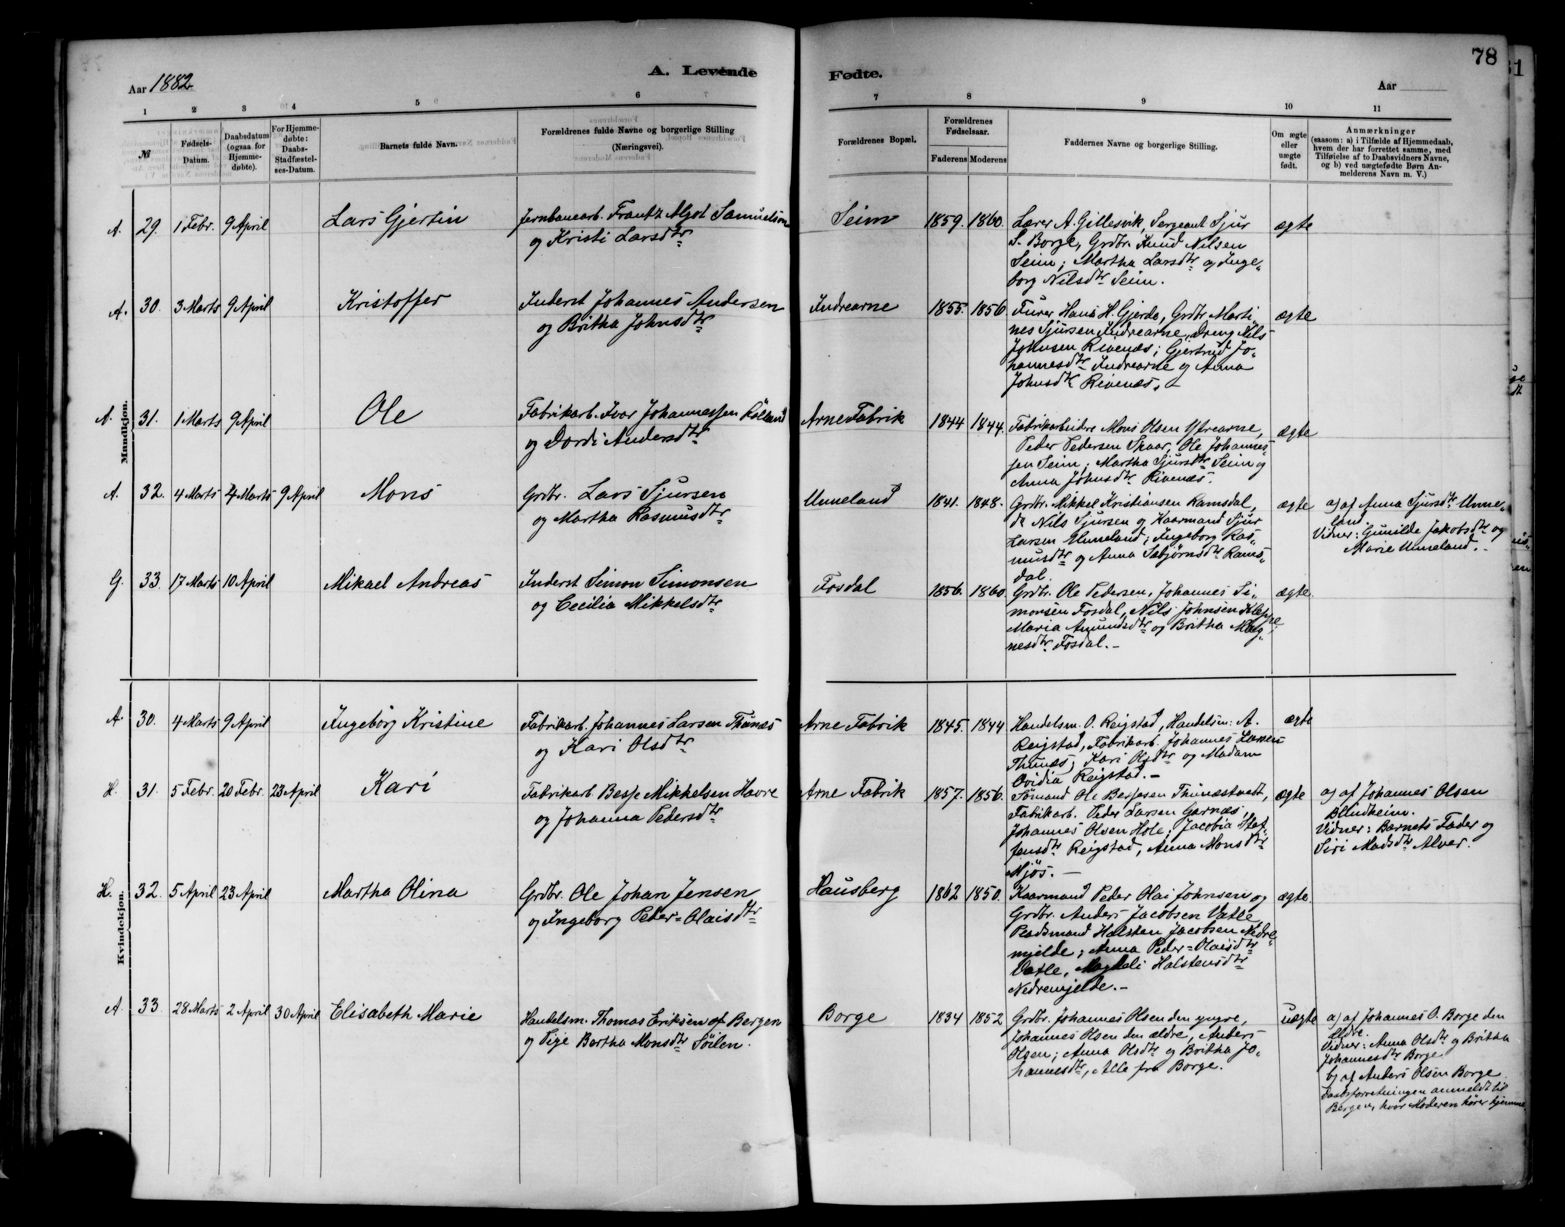 78
Aar 1882
A. Levende Fødte.
Aar
1 2 3 4 5 6 7 8 9 10 11
№
Fødsels-Datum.
Daabsdatum (ogsaa for Hjemmedøbte).
For Hjemmedøbte: Daabs-Stadfæstelses-Datum.
Barnets fulde Navn.
Forældrenes fulde Navne og borgerlige Stilling (Næringsvei).
Forældrenes Bopæl.
Forældrenes Fødselsaar.
Faderens Moderens
Faddernes Navne og borgerlige Stilling.
Om ægte eller uægte født.
Anmærkninger (saasom: a) i Tilfælde af Hjemmedaab, hvem der har forrettet samme, med Tilføielse af to Daabsvidners Navne, og b) ved uægtefødte Børn Anmelderens Navn m. V.)
Mandkjøn.
A. 29. 1 Febr. 9 April Lars Gjertin
Jernbanearb. Frantz Algot Samuelson
og Kristi Larsdtr
Seim 1859. 1860.
Lærer A. Gillesvik, Sergeant Sjur
S. Borge, Grdbr. Knud Nilsen
Seim; Martha Larsdtr og Inge-
borg Nilsdtr Seim.
ægte
A. 30. 3 Marts 9 April Kristoffer
Inderst Johannes Andersen
og Britha Johnsdtr
Indrearne 1855. 1856
Furer Hans H. Gjerde, Grdbr. Marti-
nes Sjursen Indrearne, Dreng Nils
Johnsen Rivenæs; Gjertrud Jo-
hannesdtr Indrearne og Anna
Johnsdtr Rivenæs.
ægte
A. 31. 1 Marts 9 April Ole
Fabrikarb. Ivar Johannessen
og Dordi Andersdtr
Arne Fabrik 1844 1844.
Fabrikarbeidere Mons Olsen Ytrearne,
Peder Pedersen Skaar, Ole Johannes-
sen Seim; Martha Sjursdtr Seim og
Anna Johnsdtr Rivenæs.
ægte
A. 32. 4 Marts 4 Marts 9 April Mons
Grdbr. Lars Sjursen
og Martha Rasmusdtr
Unneland 1841. 1848.
Grdbr. Mikkel Kristiansen Ramsdal,
do Nils Sjursen og Kaarmand Sjur
Larsen Unneland; Ingeborg Ras-
musdtr og Anna Asbjørnsdtr Rams-
dal.
ægte
a) af Anna Sjursdtr Unne-
land.
Vidner: Gunilde Jakobsdtr og
Marie Unneland.
G. 33 17 Marts 10 April Mikael Andreas
Inderst Simon Simonsen
og Cecilia Mikkelsdtr
Fosdal 1856. 1860
Grdbr. Ole Pedersen, Johannes Si-
monsen Fosdal, Nils Johnsen Kleppe;
Maria Amundsdtr og Britha Mag-
nesdtr Fosdal.
ægte
Kvindekjøn.
A. 30. 4 Marts 9 April Ingeborg Kristine
Fabrikarb. Johannes Larsen Thunæs
og Kari Olsdtr
Arne Fabrik 1845. 1844
Handelsm. O. Reigstad, Handelsm. A.
Reigstad, Fabrikarb. Johannes Larsen
Thunæs; Kari Olsdtr og Madam
Ovidia Reigstad.
ægte
H. 31. 5 Febr. 20 Febr. 23 April Kari
Fabrikarb. Besse Mikkelsen Havre
og Johanna Pedersdtr
Arne Fabrik 1857. 1856.
Sømand Ole Bessesen Thunestvedt,
Fabrikarb. Peder Larsen Garnæs,
Johannes Olsen Hole; Jacobia Stef-
fensdtr Reigstad, Anna Monsdtr
Mjøs.
ægte
a) af Johannes Olsen
Blindheim.
Vidner: Barnets Fader og
Siri Madsdtr Alver.
H. 32. 5 April 23 April Martha Olina
Grdbr. Ole Johan Jensen
og Ingeborg Peder-Olaisdtr
Hausberg 1862 1850.
Kaarmand Peder Olai Johnsen og
Grdbr. Anders Jacobsen Vatle,
Raadsmand Halsten Jacobsen Nedre-
mjelde; Anna Peder-Olaisdtr
Vatle, Magdeli Halstensdtr
Nedremjelde.
ægte
A. 33 28 Marts 2 April 30 April Elisabeth Marie
Handelsm. Thomas Eriksen af Bergen
og Pige Bertha Monsdtr Søilen.
Borge 1834 1852
Grdbr. Johannes Olsen den yngre,
Johannes Olsen den ældre, Anders
Olsen; Anna Olsdtr og Britha Jo-
hannesdtr, Alle fra Borge.
uægte
a) af Johannes O. Borge den
ældre.
Vidner: Anna Olsdtr og Britha
Johannesdtr Borge
b) af Anders Olsen Borge
anmeldt til
Bergen, hvor Moderen hører hjemme